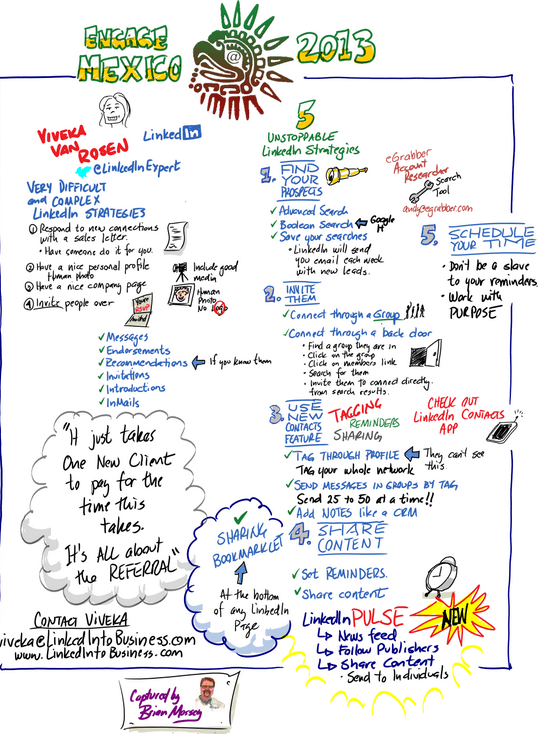 ENGAGE
MEXICO
@
2013
VIVEKA
VAN
ROSEN
LinkedIn
@LinkedInExpert
VERY DIFFICULT
and COMPLEX
LinkedIn STRATEGIES
1 Respond to new connections
with a sales letter.
• Have someone do it for you.
2 Have a nice personal profile
Human photo
3 Have a nice company page
4 Invite people over
Include good
media
Human
Photo
No Logo
Your
RSVP
Invited
✓ Messages
✓ Endorsements
✓ Recommendations
If you know them
✓ Invitations
✓ Introductions
✓ InMails
"It just takes
One New Client
to pay for the
time this
takes.
It's ALL about
the REFERRAL"
CONTACT VIVEKA
viveka@LinkedIntoBusiness.com
www.LinkedIntoBusiness.com
5
UNSTOPPABLE
LinkedIn Strategies
1. FIND
YOUR
PROSPECTS
✓ Advanced Search
✓ Boolean Search
Google
it
✓ Save your searches
• LinkedIn will send
you email each week
with new leads.
eGrabber
Account
Researcher
Search
Tool
andy@egrabber.com
2. INVITE
THEM
✓ Connect through a Group
✓ Connect through a back door
• Find a group they are in
• Click on the group
• Click on members link
• Search for them
• Invite them to connect directly
from search results.
3. USE
NEW
CONTACTS
FEATURE
TAGGING
REMINDERS
SHARING
CHECK OUT
LinkedIn CONTACTS
APP
✓ TAG THROUGH PROFILE
They can't see
this.
TAG your whole network
✓ SEND MESSAGES IN GROUPS BY TAG
Send 25 to 50 at a time!!
✓ Add NOTES like a CRM
4. SHARE
CONTENT
✓ Set REMINDERS.
✓ Share content
✓
SHARING
BOOKMARKLET
At the bottom
of any LinkedIn
Page
LinkedIn PULSE
NEW
↳ News feed
↳ Follow Publishers
↳ Share Content
• Send to Individuals
5. SCHEDULE
YOUR TIME
• Don't be a slave
to your reminders.
• Work with
PURPOSE
Captured by